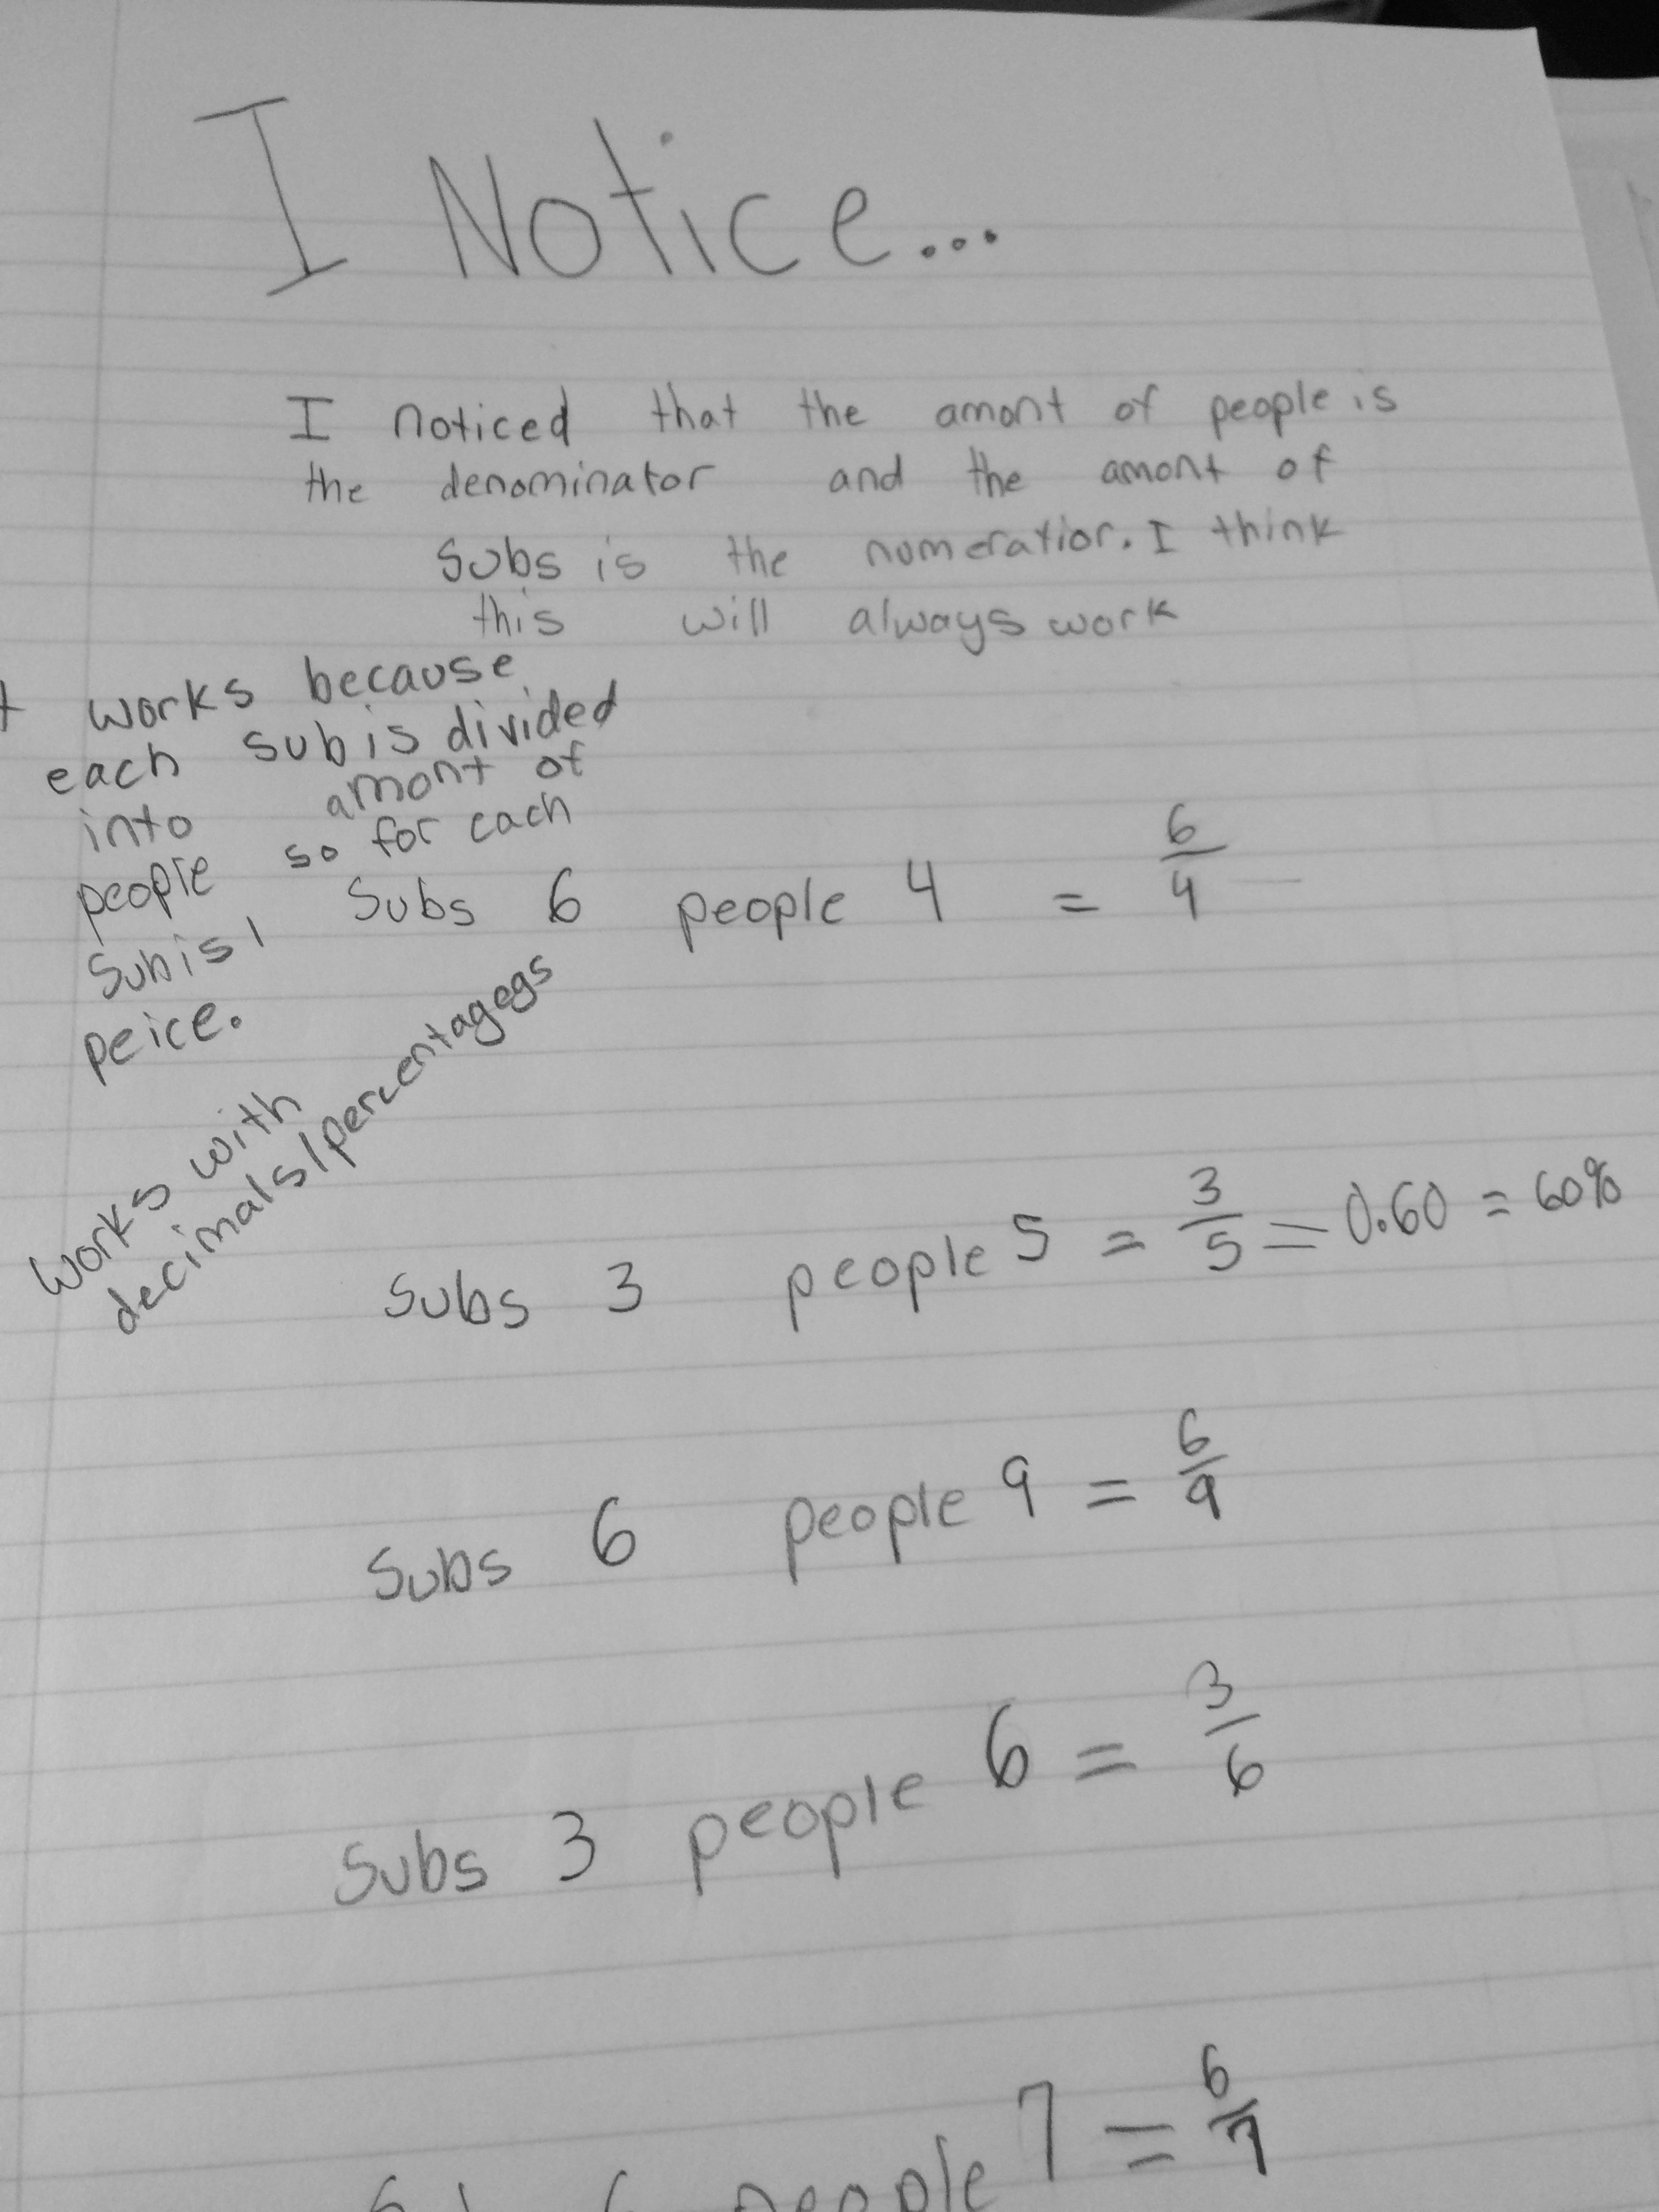 I Notice...
I noticed that the amont of people is
the denominator and the amont of
Subs is the numeratior. I think
this will always work
works because
each sub is divided
into amont of
people so for each
Sub is 1
peice.
Subs 6 people 4 = 6/4
works with
decimals/percentagegs
Subs 3 people 5 = 3/5 = 0.60 = 60%
Subs 6 people 9 = 6/9
Subs 3 people 6 = 3/6
people 7 = 6/7